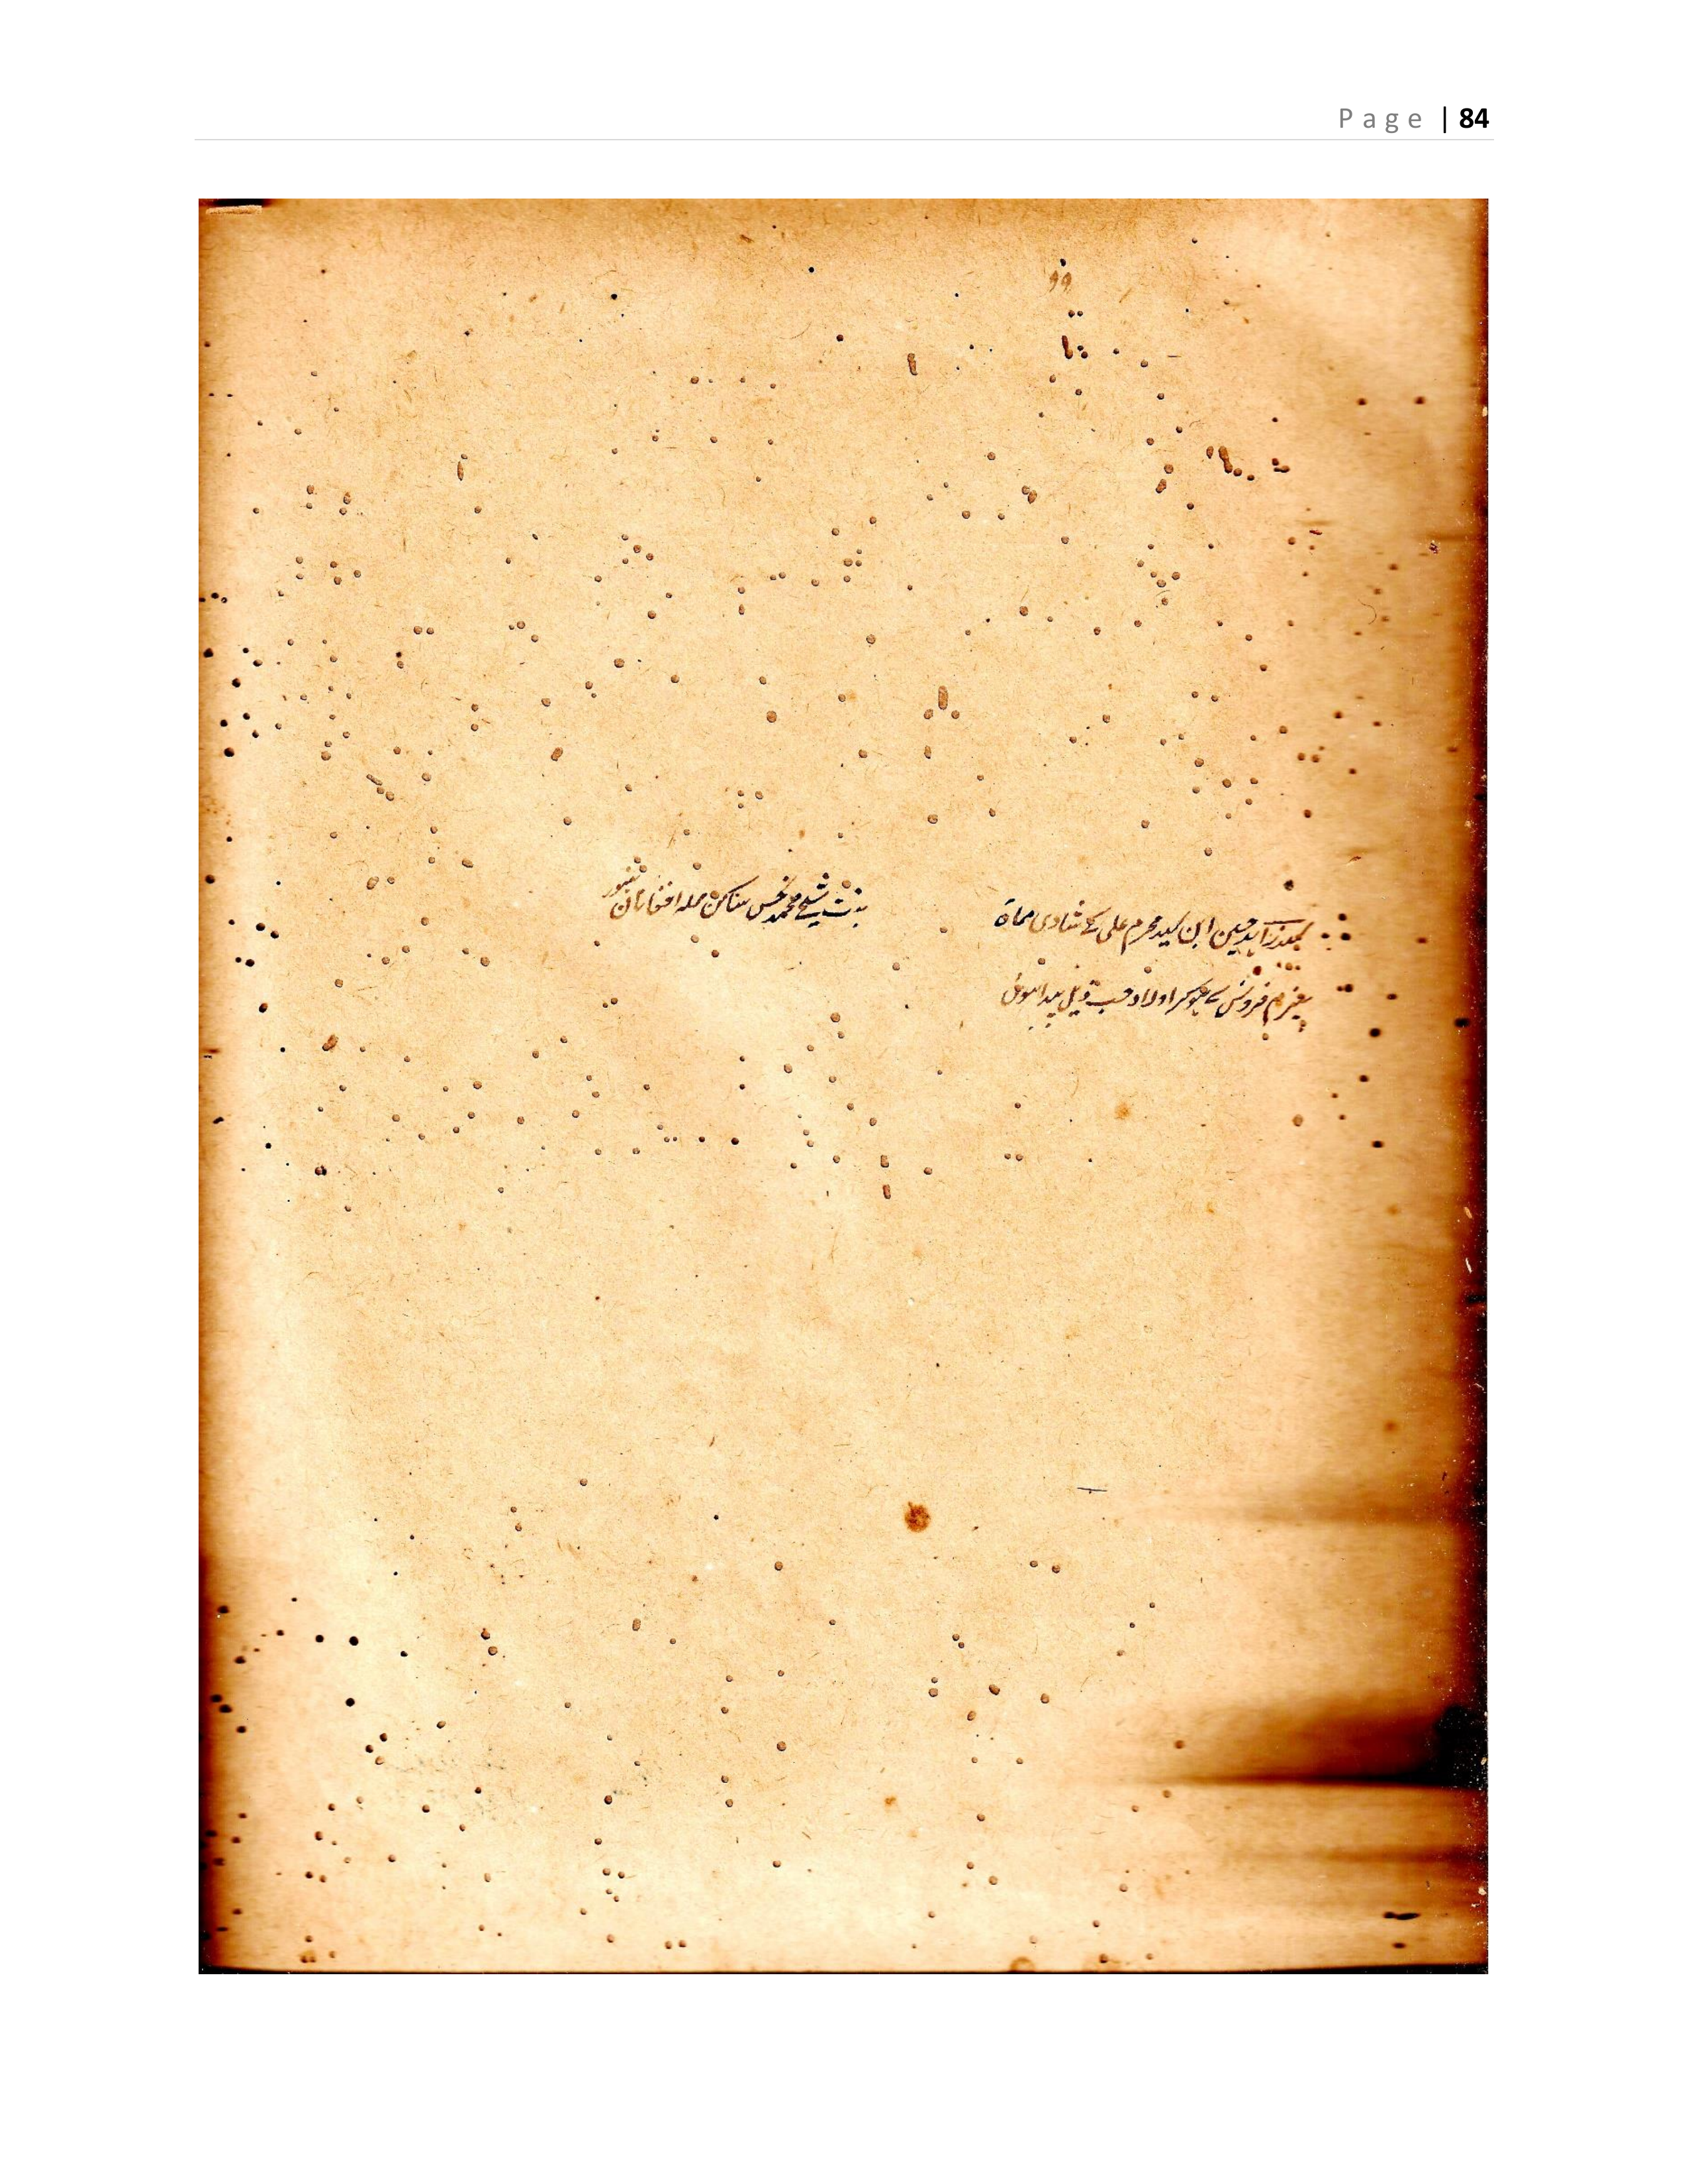 Page | 84
۹۹
سید زاہد حسین ابن سید محرم علی کے شادی مسماۃ
بنت شیخ محمد بخش ساکن محلہ افغانان
سے ہوکر اولاد حسب ذیل پیدا ہوئی